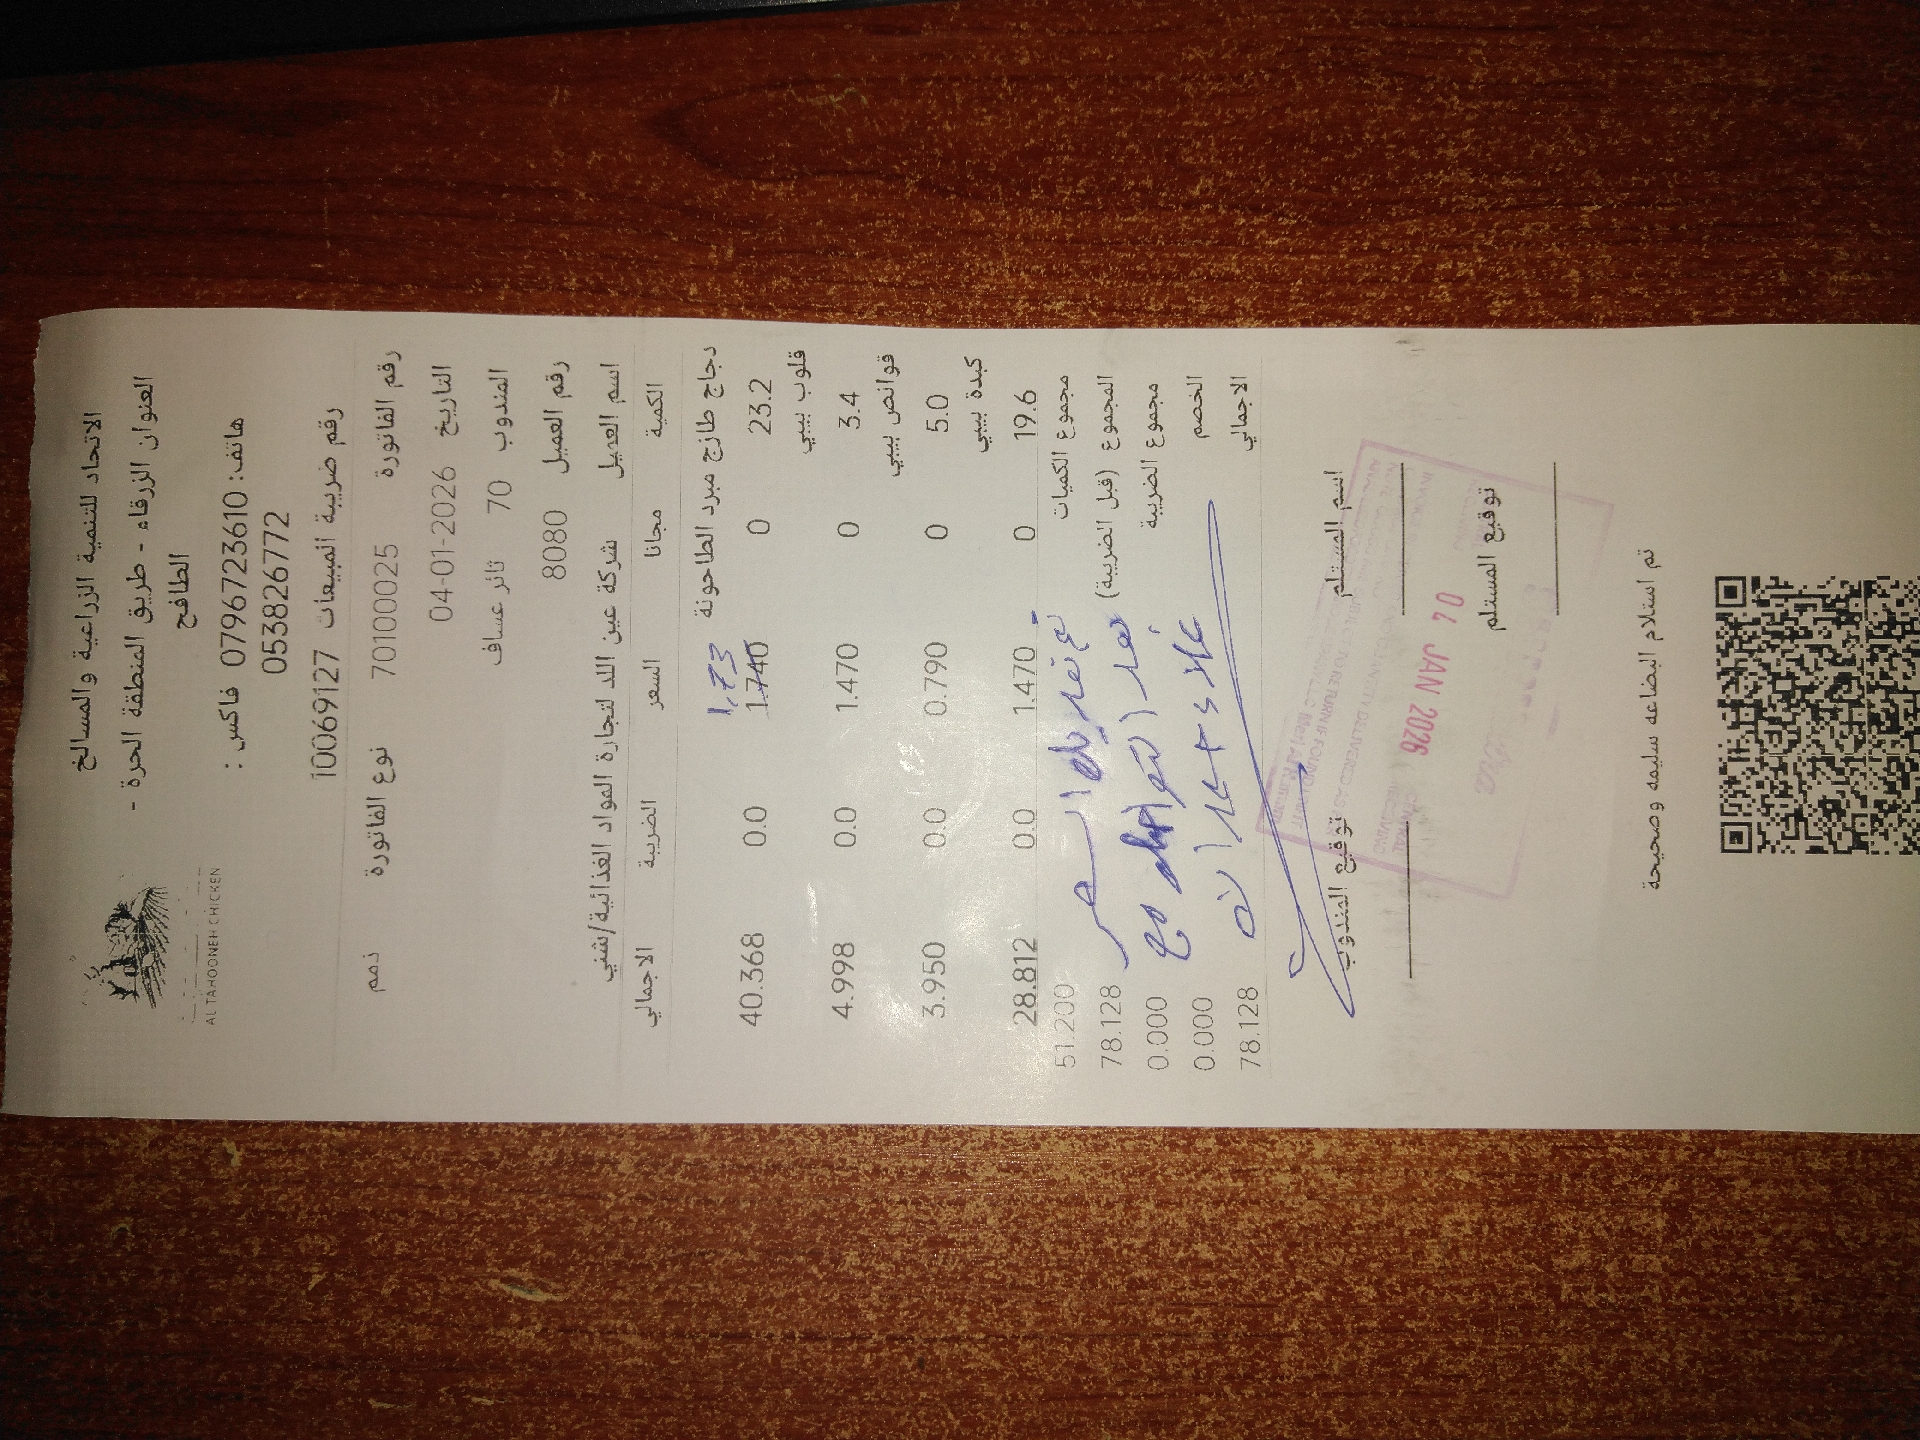 الاتحاد للتنمية الزراعية والمسالخ
العنوان الزرقاء - طريق المنطقة الحرة -
الطافح
هاتف: 0796723610 فاكس :
053826772
AL TAHOONEH CHICKEN
رقم ضريبة المبيعات 10069127
رقم الفاتورة 70100025 نوع الفاتورة ذمم
التاريخ 04-01-2026
المندوب 70 ثائر عساف
رقم العميل 8080
اسم العميل شركة عين اللد لتجارة المواد الغذائية/شني
الكمية مجانا السعر الضريبة الاجمالي
دجاج طازج مبرد الطاحونة 1,73
23.2 0 1.740 0.0 40.368
قلوب بيبي
3.4 0 1.470 0.0 4.998
قوانص بيبي
5.0 0 0.790 0.0 3.950
كبدة بيبي
19.6 0 1.470 0.0 28.812
مجموع الكميات 51.200
تم تعديل السعر
المجموع (قبل الضريبة) 78.128
بعد التواصل مع
مجموع الضريبة 0.000
علاء
الخصم 0.000
الاجمالي 78.128
اسم المستلم توقيع المندوب
04 JAN 2026
توقيع المستلم
تم استلام البضاعه سليمه وصحيحة